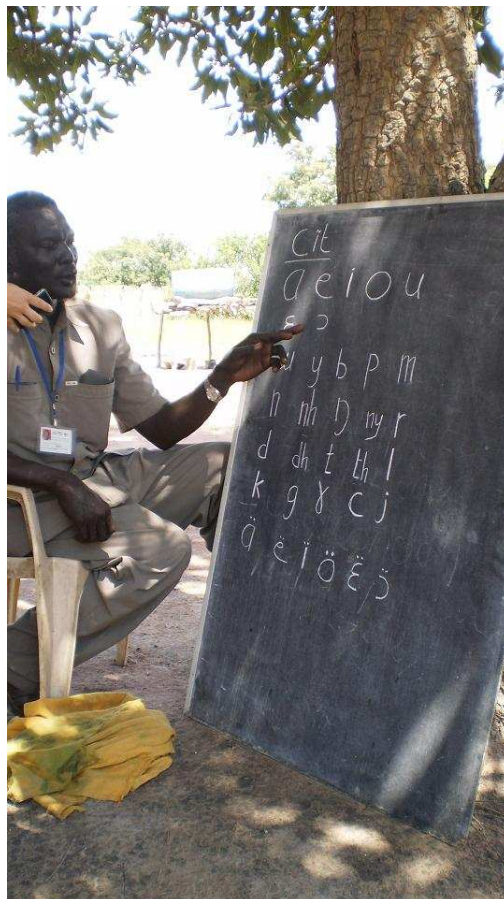 Cït
a e i o u
ɛ ɔ
w y b p m
n nh ŋ ny r
d dh t th l
k g ɣ c j
ä, ë, ï, ö, ɛ̈, ɔ̈